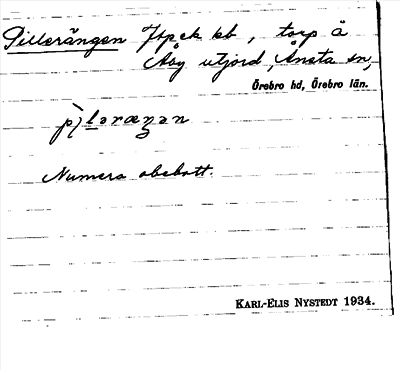 Pillerängen Jspek kb, torp å
Åby utjord, Ånsta sn,
Örebro hd, Örebro län.
Numera obebott.
KARL-ELIS NYSTEDT 1934.